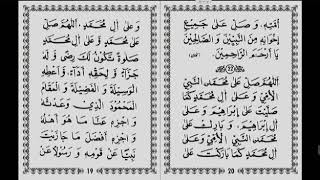 وَعَلَى آلِ مُحَمَّدٍ، اَللّٰهُمَّ صَلِّ
عَلَى مُحَمَّدٍ وَّ عَلَى آلِ مُحَمَّدٍ
صَلٰوةً تَكُونُ لَكَ رِضًى وَّ لَهُ
جَزَآءً وَّ لِحَقِّهِ أَدَآءً، وَّأَعْطِهِ
الْوَسِيلَةَ وَ الْفَضِيلَةَ وَ الْمَقَامَ
الْمَحْمُودَ الَّذِي وَعَدْتَّهُ
وَ اجْزِهِ عَنَّا مَا هُوَ أَهْلُهُ
وَ اجْزِهِ أَفْضَلَ مَا جَازَيْتَ
نَبِيًّا عَنْ قَوْمِهِ وَ رَسُولًا عَنْ
19
أُمَّتِهِ، وَ صَلِّ عَلَى جَمِيعِ
إِخْوَانِهِ مِنَ النَّبِيِّينَ وَ الصَّالِحِينَ
يَا أَرْحَمَ الرَّاحِمِينَ
12
اَللّٰهُمَّ صَلِّ عَلَى مُحَمَّدٍ النَّبِيِّ
الْأُمِّيِّ وَ عَلَى آلِ مُحَمَّدٍ كَمَا
صَلَّيْتَ عَلَى إِبْرَاهِيمَ وَ عَلَى
آلِ إِبْرَاهِيمَ، وَ بَارِكْ عَلَى
مُحَمَّدٍ النَّبِيِّ الْأُمِّيِّ وَ عَلَى
آلِ مُحَمَّدٍ كَمَا بَارَكْتَ عَلَى
20